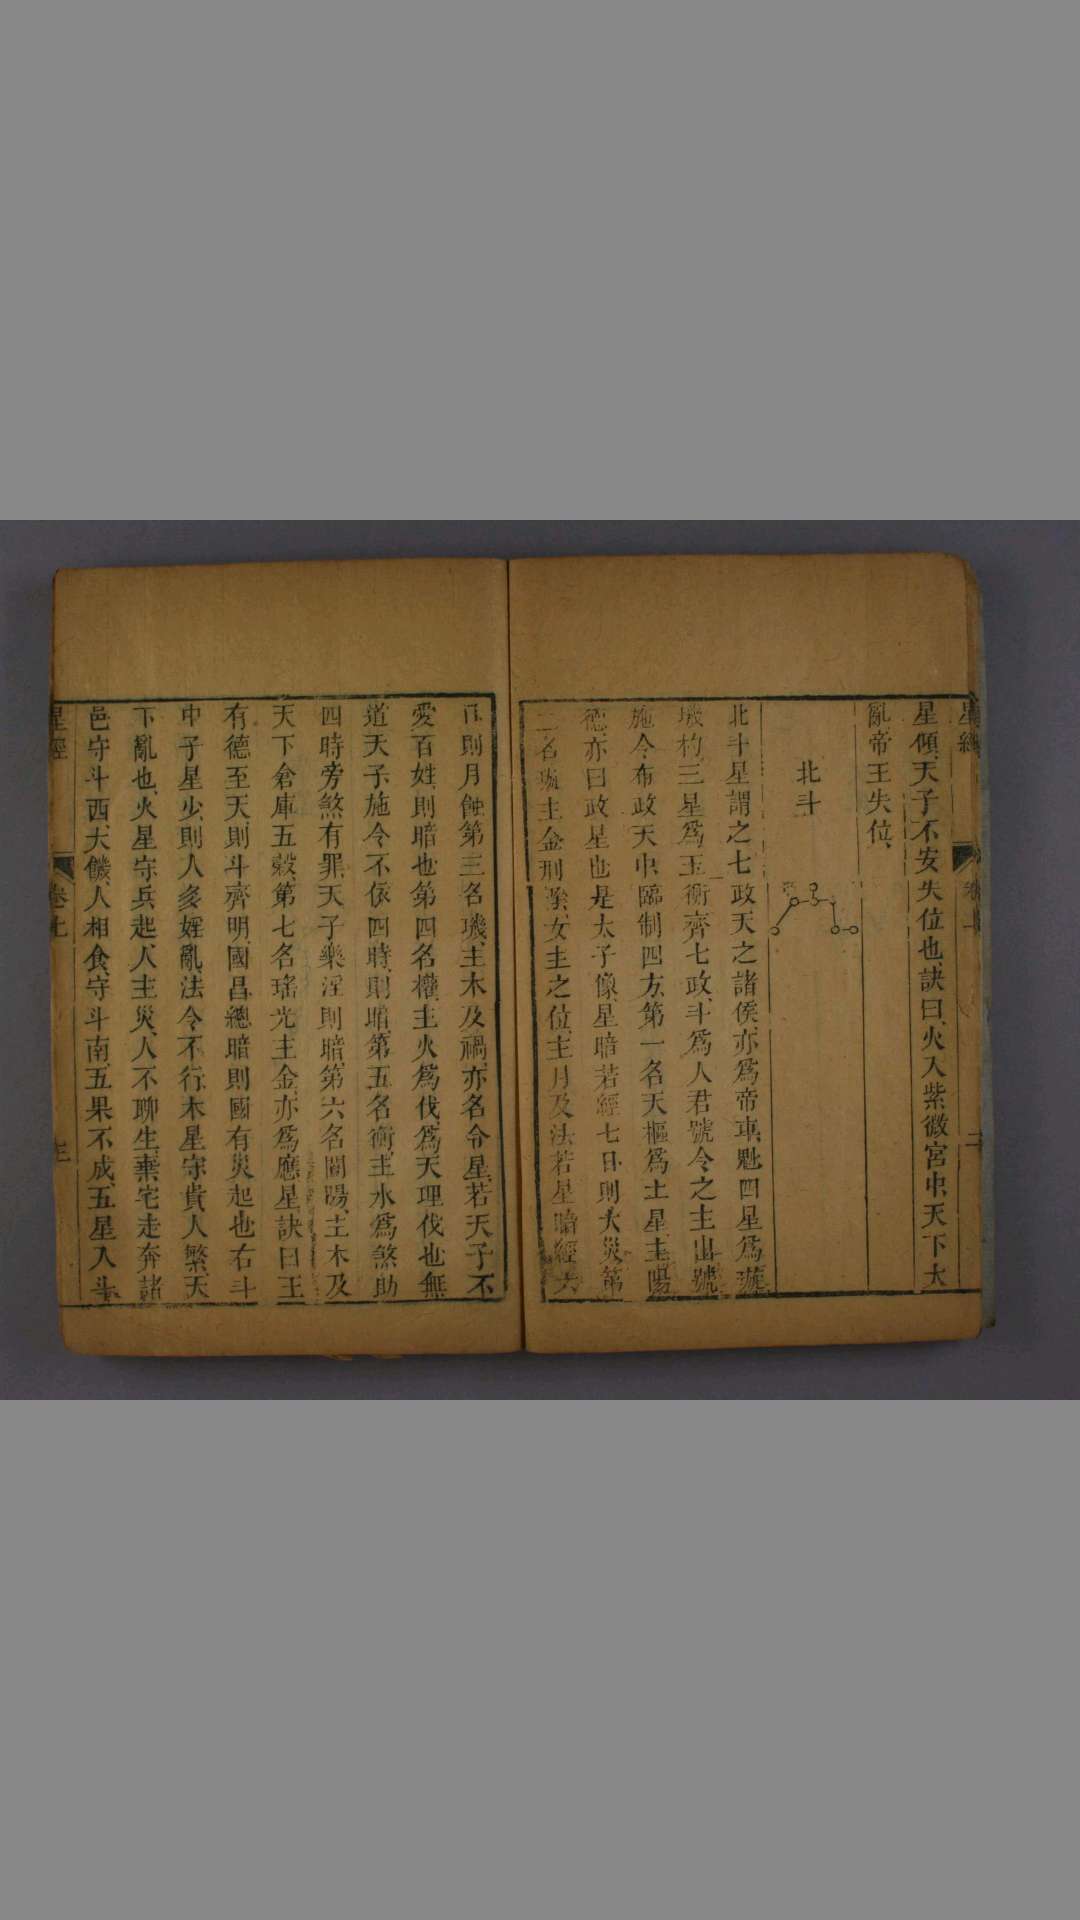 星經
卷上
二
星傾、天子不安失位也、訣曰、火入紫微宮中、天下大
亂帝王失位、
北斗
北斗星謂之七政天之諸侯、亦爲帝車、魁四星爲璇
璣、杓三星爲玉衡齊七政、斗爲人君號令之主出號
施令布政天中、臨制四方、第一名天樞爲土星主陽
德、亦曰政星也是太子像、星暗若經七日則大災、第
二名璇主金刑、女主之位、主月及法若星暗經六
日則月蝕第三名璣、主木及禍、亦名令星、若天子不
愛百姓、則暗也第四名權主火爲伐、爲天理伐也無
道天子施令不依四時、則暗、第五名衡、主水爲煞助
四時旁煞有罪、天子樂淫則暗第六名闓陽、主木及
天下倉庫五穀、第七名瑤光主金、亦爲應星、訣曰王
有德至天則斗齊明、國昌總暗則國有災起也右斗
中子星少、則人多婬亂、法令不行、木星守貴人繁、天
下亂也、火星守兵起、人主災、人不聊生、棄宅走奔諸
邑守斗西、大饑、人相食、守斗南、五果不成、五星入斗
星經
卷上
三